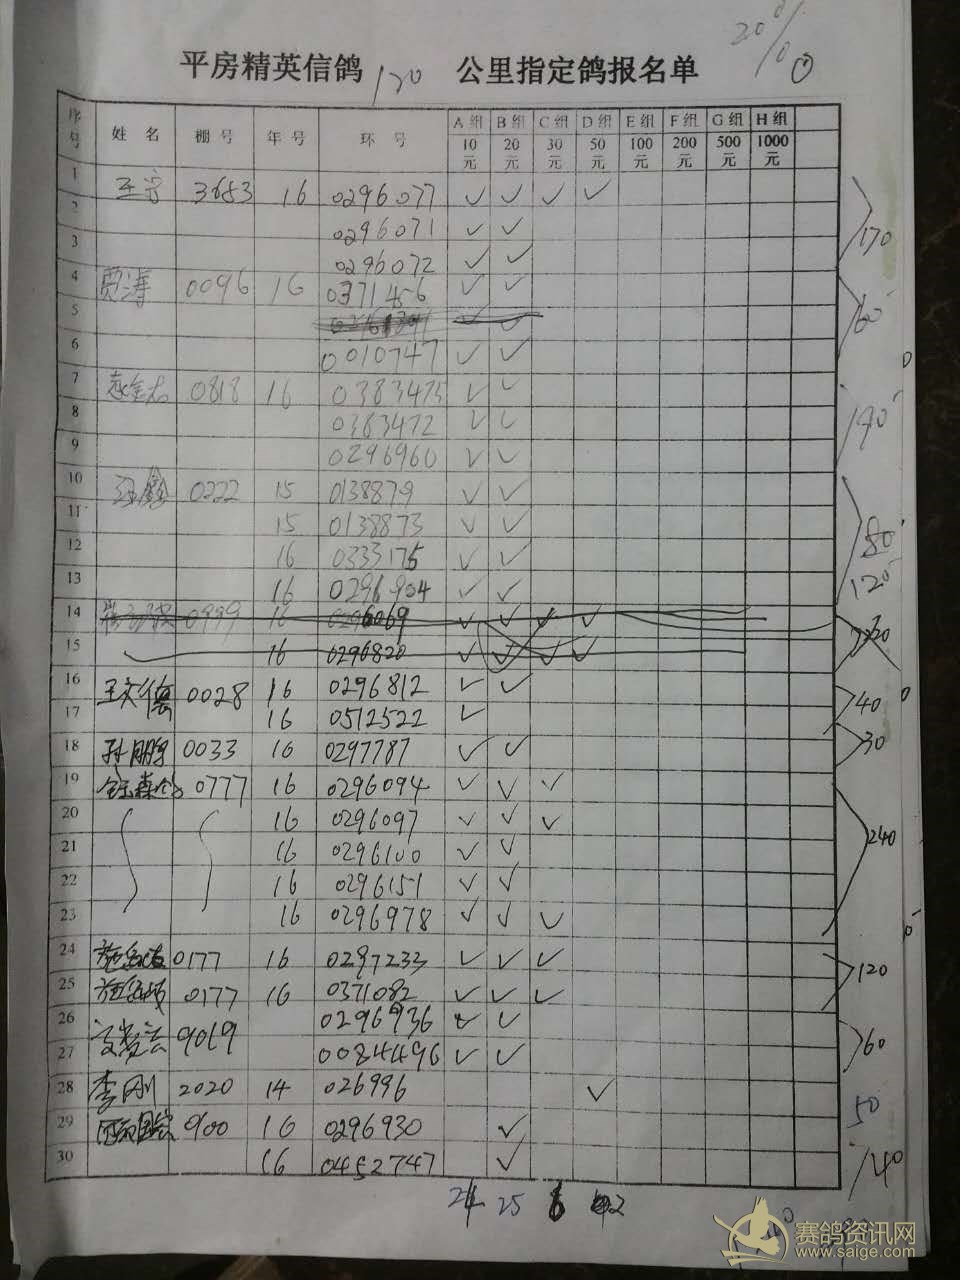 20%
0
平房精英信鸽 120 公里指定鸽报名单
序号 姓 名 棚 号 年 号 环 号 A 组 B 组 C 组 D 组 E 组 F 组 G 组 H 组
10元 20元 30元 50元 100元 200元 500元 1000元
1 3653 16 0296077 ✓ ✓ ✓ ✓
2 0296071 ✓ ✓ 170
3 0296072 ✓ ✓
4 贾涛 0096 16 0371456 ✓ ✓
5 60
6 0010747 ✓ ✓
7 0818 16 0383475 ✓ ✓
8 0383472 ✓ ✓ 90
9 0296960 ✓ ✓
10 汪鑫 0222 15 0138879 ✓ ✓
11 15 0138873 ✓ ✓
12 16 0333175 ✓ ✓
13 16 0296904 ✓ ✓ 120
14 0999 16 0296069 ✓ ✓ ✓ ✓
15 16 0296820 ✓ ✓ ✓ ✓
16 王文德 0028 16 0296812 ✓ ✓
17 16 0512522 ✓ 40
18 孙鹏宇 0033 16 0297787 ✓ ✓ 30
19 0777 16 0296094 ✓ ✓ ✓
20 16 0296097 ✓ ✓ ✓
21 16 0296100 ✓ ✓ 240
22 16 0296151 ✓ ✓
23 16 0296978 ✓ ✓ ✓
24 0177 16 0297233 ✓ ✓ ✓
25 0177 16 0371082 ✓ ✓ ✓ 120
26 0296936 ✓ ✓
27 9019 0084496 ✓ ✓ 60
28 李刚 2020 14 026996 ✓ 50
29 900 16 0296930 ✓
30 16 0452747 ✓ 40
24 25 6 2
赛鸽资讯网
www.saige.com